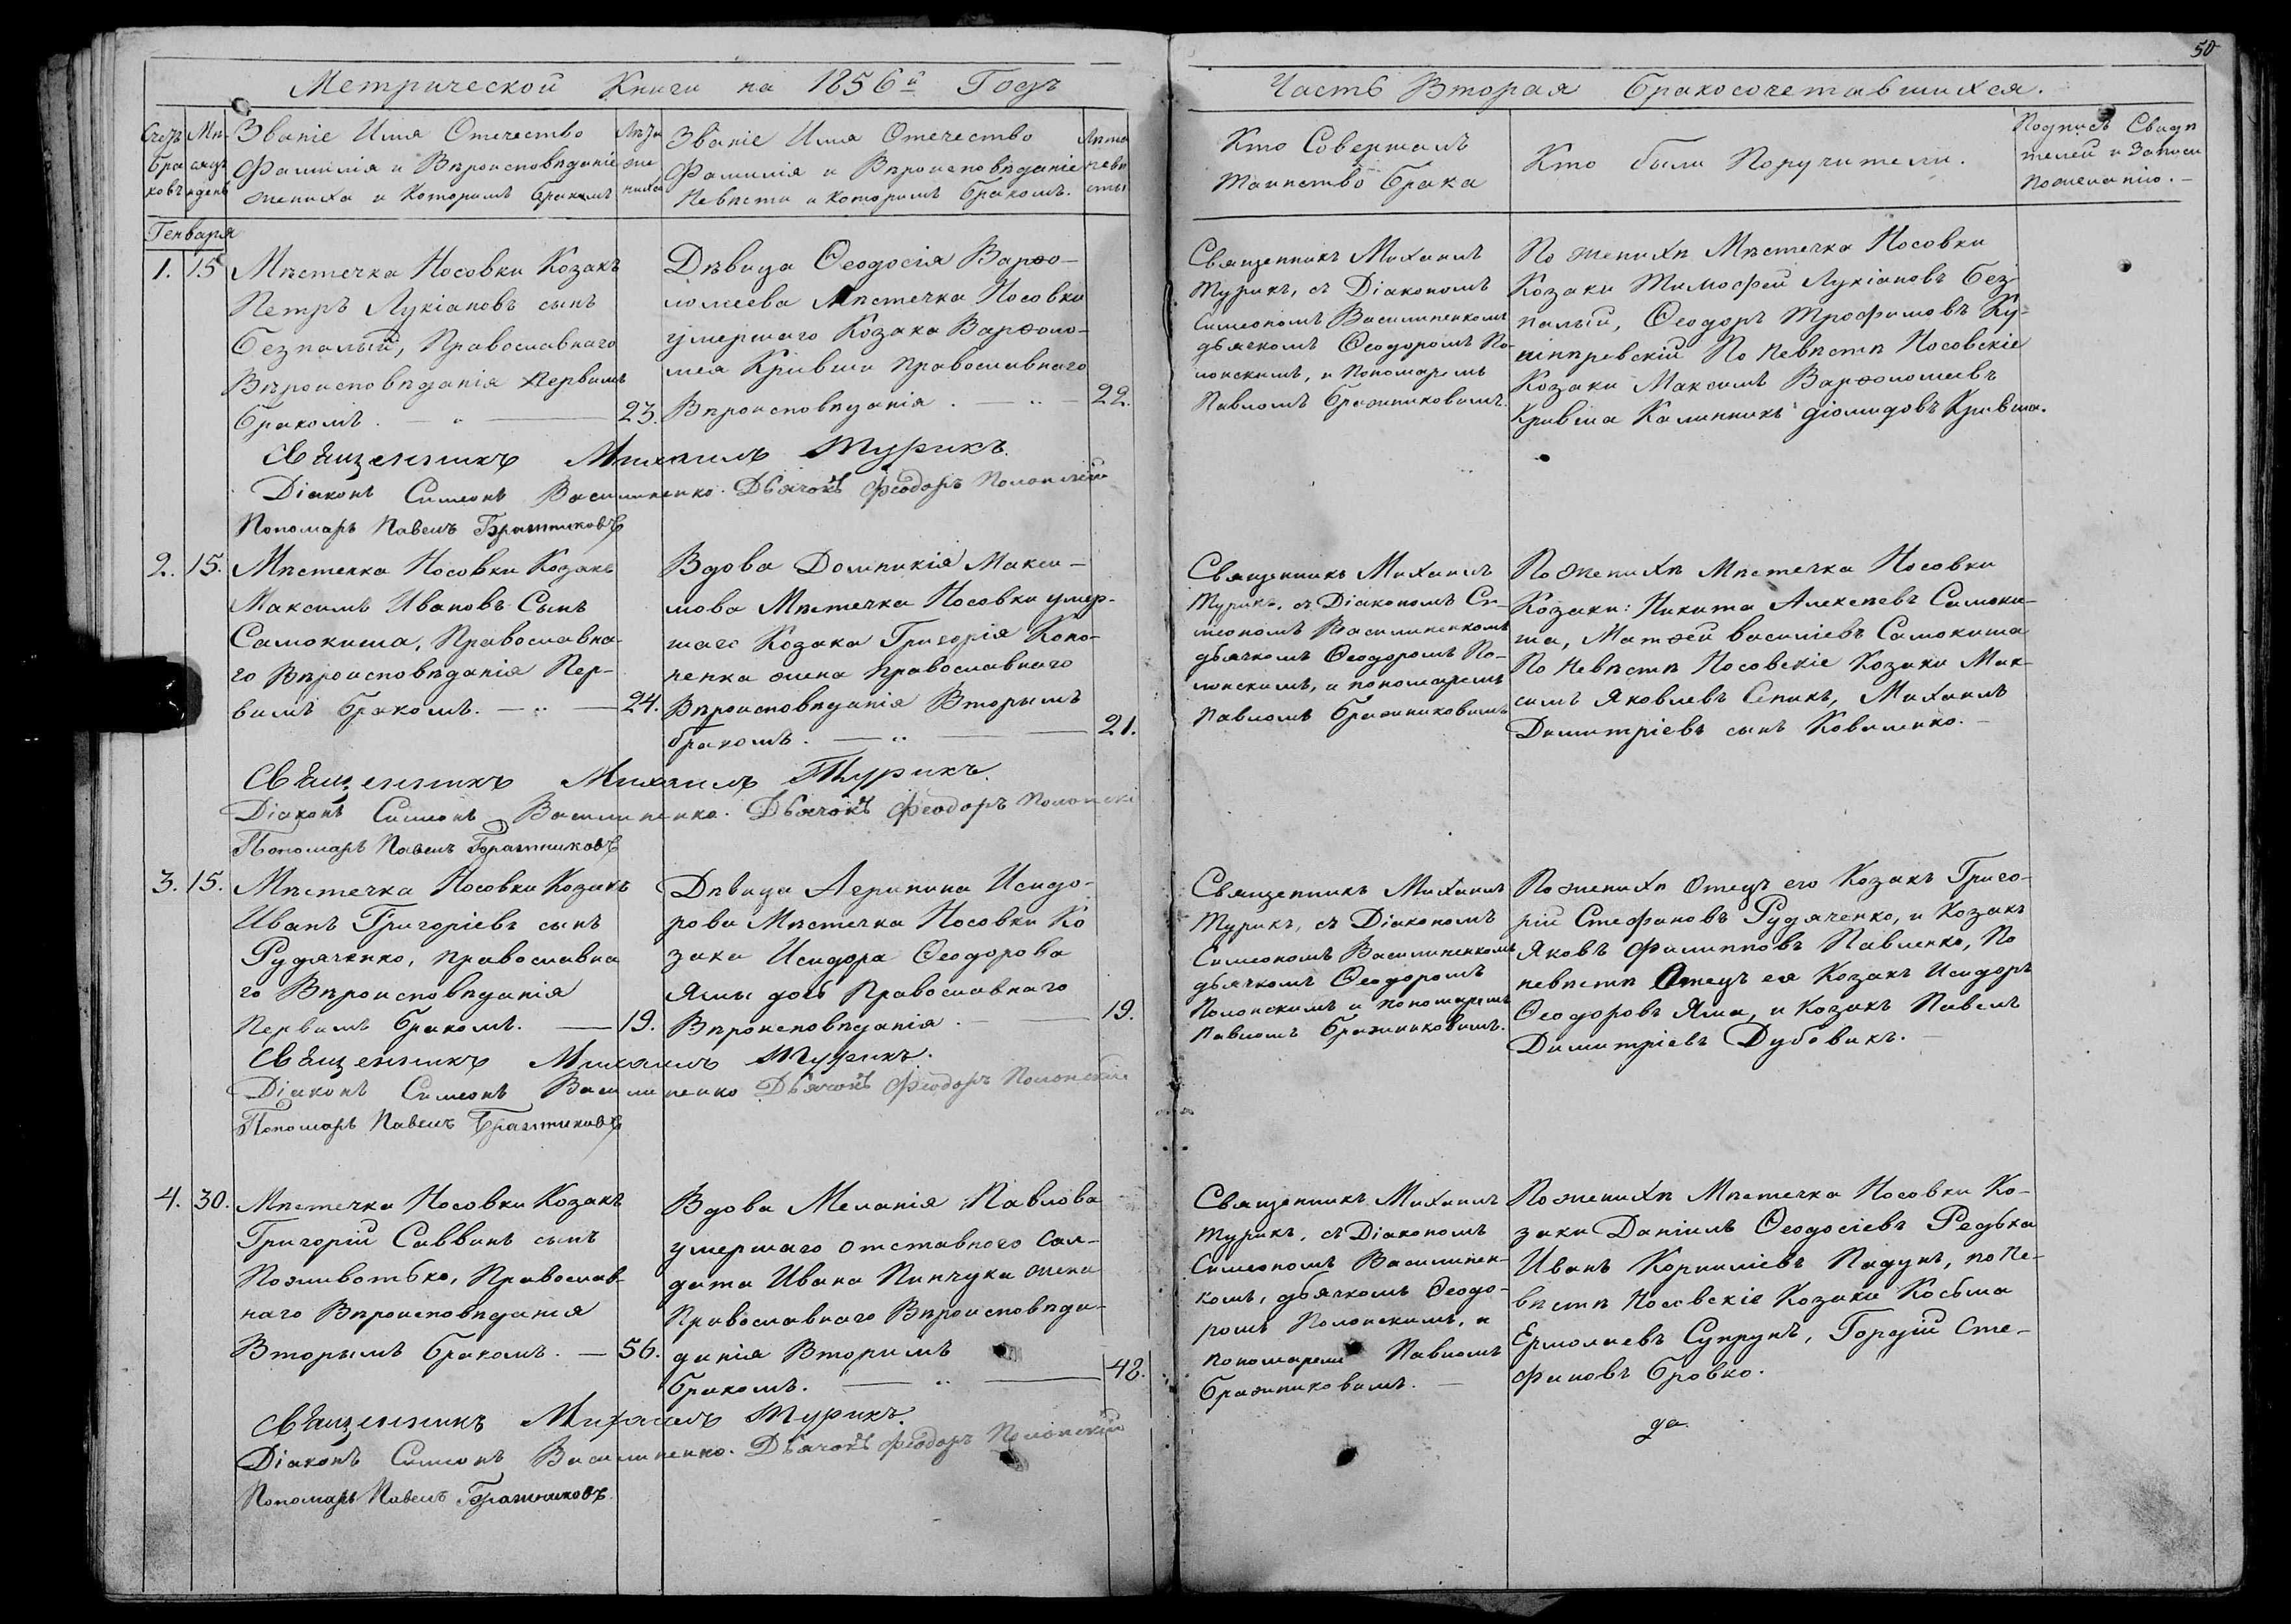 50
Метрической Книги на 1856й Годъ
Часть Вторая Бракосочетавшихся.
Счетъ браковъ
Мѣсяцъ и день
Званіе Имя Отечество
Фамилія и Вѣроисповѣданіе
жениха и Которымъ бракомъ
Лѣта жениха
Званіе Имя Отечество
Фамилія и Вѣроисповѣданіе
Невѣсти и которимъ бракомъ.
Лѣта невѣсты
Кто Совершалъ
таинство брака
Кто были Поручители.
Подпись Свидѣ
телей и Записи
по желанію.
Генваря
1. 15
Мѣстечка Носовки Козакъ
Петръ Лукіановъ сынъ
Безпалый, Православнаго
Вѣроисповѣданія первимъ
бракомъ. 23.
Дѣвица Ѳеодосія Варѳо-
ломеева Мѣстечка Носовки
умершаго Козака Варѳоло-
мея Кривши православнаго
Вѣроисповѣданія. 22.
Священникъ Михаилъ
Турикъ, съ Діакономъ
Симеономъ Василиненкомъ
дьячкомъ Ѳеодоромъ По-
лонскимъ, и Пономаремъ
Павломъ Бражниковимъ.
По женихѣ Мѣстечка Носовки
Козаки Тимофей Лукіановъ Без
палый, Ѳеодоръ Трофимовъ Ку-
По невѣстѣ Носовскіе
Козаки Максимъ Варѳоломеевъ
Кривша Калинникъ діомидовъ Кривша.
Священникъ Михаилъ Турикъ.
Діаконъ Симеонъ Василиненко. Дьячокъ Феодоръ Полонскій
Пономарь Павелъ Бражниковъ
2. 15.
Мѣстечка Носовки Козакъ
Максимъ Ивановъ Сынъ
Самокиша, Православна-
го Вѣроисповѣданія Пер-
вимъ бракомъ. 24.
Вдова Домникія Макси-
мова Мѣстечка Носовки умер-
шаго Козака Григорія Коно-
ненка жена православнаго
Вѣроисповѣданія Вторымъ
бракомъ. 21.
Священникъ Михаилъ
Турикъ, съ Діакономъ Си-
меономъ Василиненкомъ
дьячкомъ Ѳеодоромъ По-
лонскимъ, и пономаремъ
Павломъ Бражниковимъ
По женихѣ Мѣстечка Носовки
Козаки: Никита Алексѣевъ Самоки-
ша, Матѳей василіевъ Самокиша
По невѣстѣ Носовскіе Козаки Мак-
симъ Яковлевъ Сепикъ, Михаилъ
Димитріевъ сынъ Коваленко.
Священникъ Михаилъ Турикъ.
Діаконъ Симеонъ Василиненко. Дьячокъ Феодоръ Полонскі
Пономарь Павелъ Бражниковъ
3. 15.
Мѣстечка Носовки Козакъ
Иванъ Григоріевъ сынъ
Рудяченко, православна
го Вѣроисповѣданія
Первимъ бракомъ. 19.
Дѣвица Агрипина Исидо-
рова Мѣстечка Носовки Ко
зака Исидора Ѳеодорова
Ямы дочь Православнаго
Вѣроисповѣданія. 19.
Священникъ Михаилъ
Турикъ, съ Діакономъ
Симеономъ Василиненкомъ
дьячкомъ Ѳеодоромъ
Полонскимъ и пономаремъ
Павломъ Бражниковимъ.
По женихѣ Отецъ его Козакъ Григо-
рій Стефановъ Рудяченко, и Козакъ
Яковъ Филипповъ Павленко, По
невѣстѣ Отецъ ея Козакъ Исидоръ
Ѳеодоровъ Яма, и Козакъ Павелъ
Димитріевъ Дубовикъ.
Священникъ Михаилъ Турикъ.
Діаконъ Симеонъ Василиненко Дьячокъ Феодоръ Полонскій
Пономарь Павелъ Бражниковъ
4. 30.
Мѣстечка Носовки Козакъ
Григорій Саввинъ сынъ
Поживотько, Православ-
наго Вѣроисповѣданія
Вторымъ бракомъ. 56.
Вдова Меланія Павлова
умершаго отставного Сол-
дата Ивана Пинчука жена
Православнаго Вѣроисповѣда-
данія Вторимъ
бракомъ. 42.
Священникъ Михаилъ
Турикъ, съ Діакономъ
Симеономъ Василинен-
комъ, дьячкомъ Ѳеодо-
ромъ Полонскимъ, и
пономаремъ Павломъ
Бражниковимъ.
По женихѣ Мѣстечка Носовки Ко-
заки Даніилъ Ѳеодосіевъ Редька
Иванъ Корниліевъ Падунъ, по Не-
вѣстѣ Носовскіе Козаки Косьма
Ермолаевъ Супрунъ, Гордій Сте-
фановъ Бровко.
да
Священникъ Михаилъ Турикъ.
Діаконъ Симеонъ Василиненко. Дьячокъ Феодоръ Полонскій
Пономарь Павелъ Бражниковъ.